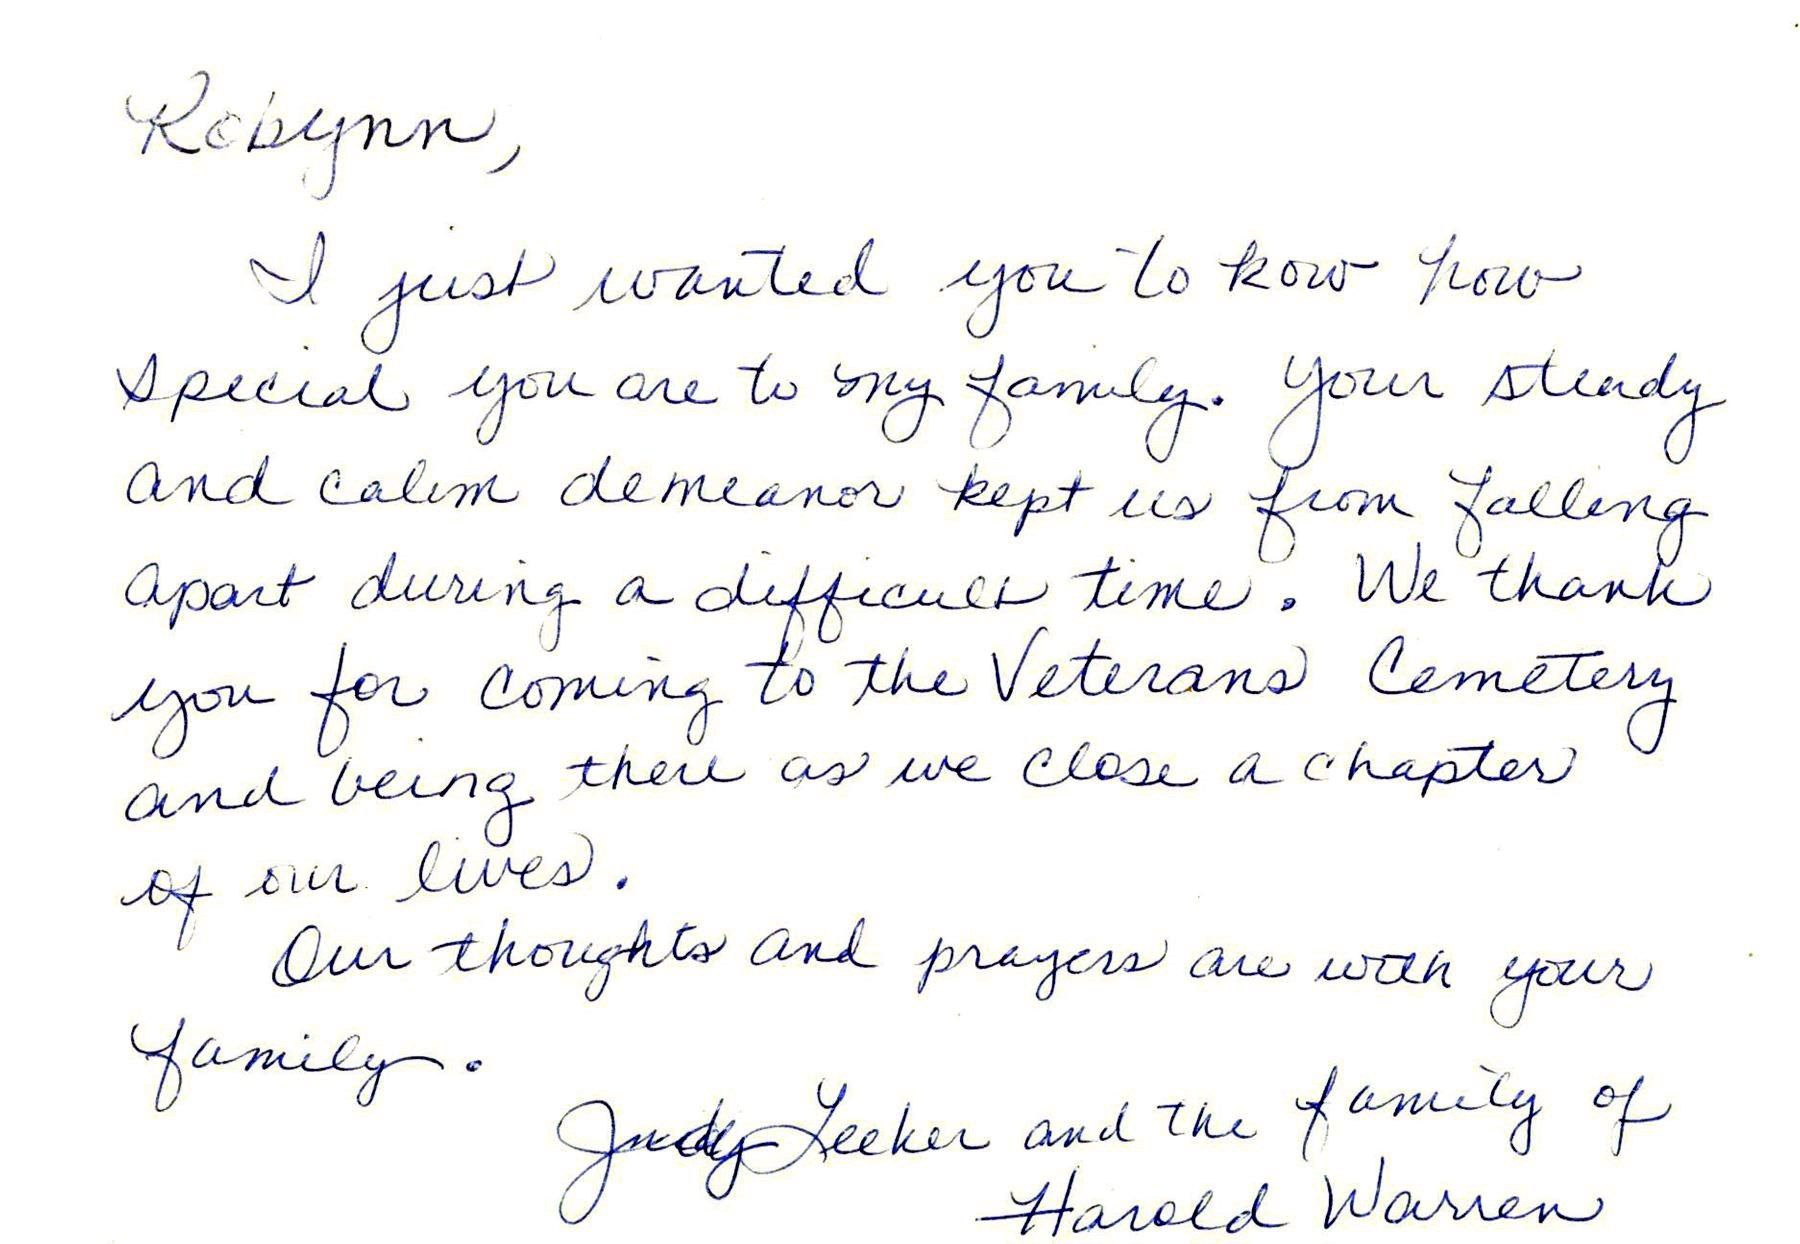 Robynn,
I just wanted you to kow how
special you are to my family. Your steady
and calm demeanor kept us from falling
apart during a difficult time. We thank
you for coming to the Veterans Cemetery
and being there as we close a chapter
of our lives.
Our thoughts and prayers are with your
family.
Judy Leeker and the family of
Harold Warren